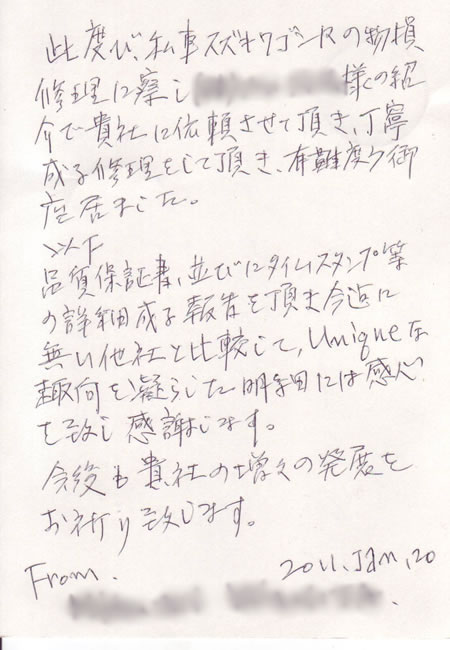 此度び、私車スズキワゴンRの物損
修理に察し 様の紹
介で貴社に依頼させて頂き、丁寧
成る修理をして頂き、有難度う御
座居ました。
以下
品質保証書、並びにタイムスタンプ等
の詳細成る報告を頂き今迄に
無い他社と比較して、Uniqueな
趣向を凝らした明細には感心
を致し感謝します。
今後も貴社の増々の発展を
お祈り致します。
From. 2011.Jan,20